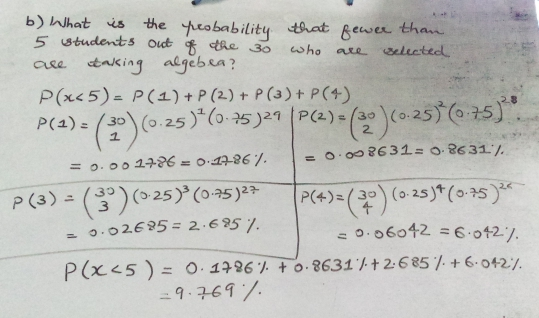 b) What is the probability that fewer than
5 students out of the 30 who are selected
are taking algebra?
P(x<5) = P(1) + P(2) + P(3) + P(4)
P(1) = (30 1) (0.25)¹ (0.75)29
= 0.001786 = 0.1786 %.
P(2) = (30 2) (0.25)² (0.75)²⁸
= 0.008631 = 0.8631 %.
P(3) = (30 3) (0.25)³ (0.75)²⁷
= 0.02685 = 2.685 %.
P(4) = (30 4) (0.25)⁴ (0.75)²⁶
= 0.06042 = 6.042 %.
P(x<5) = 0.1786 % + 0.8631 % + 2.685 % + 6.042 %.
= 9.769 %.